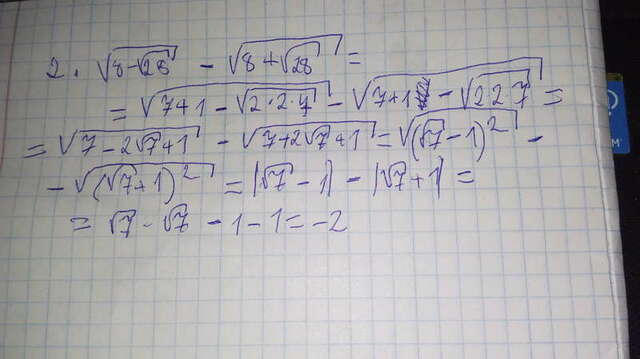 2. √(8-√28) - √(8+√28) =
= √(7+1-√(2·2·7)) - √(7+1 - √(2 2 7)) =
= √(7-2√7+1) - √(7+2√7+1) = √((√7-1)^2) -
- √((√7+1)^2) = |√7-1| - |√7+1| =
= √7 - √7 - 1 - 1 = -2